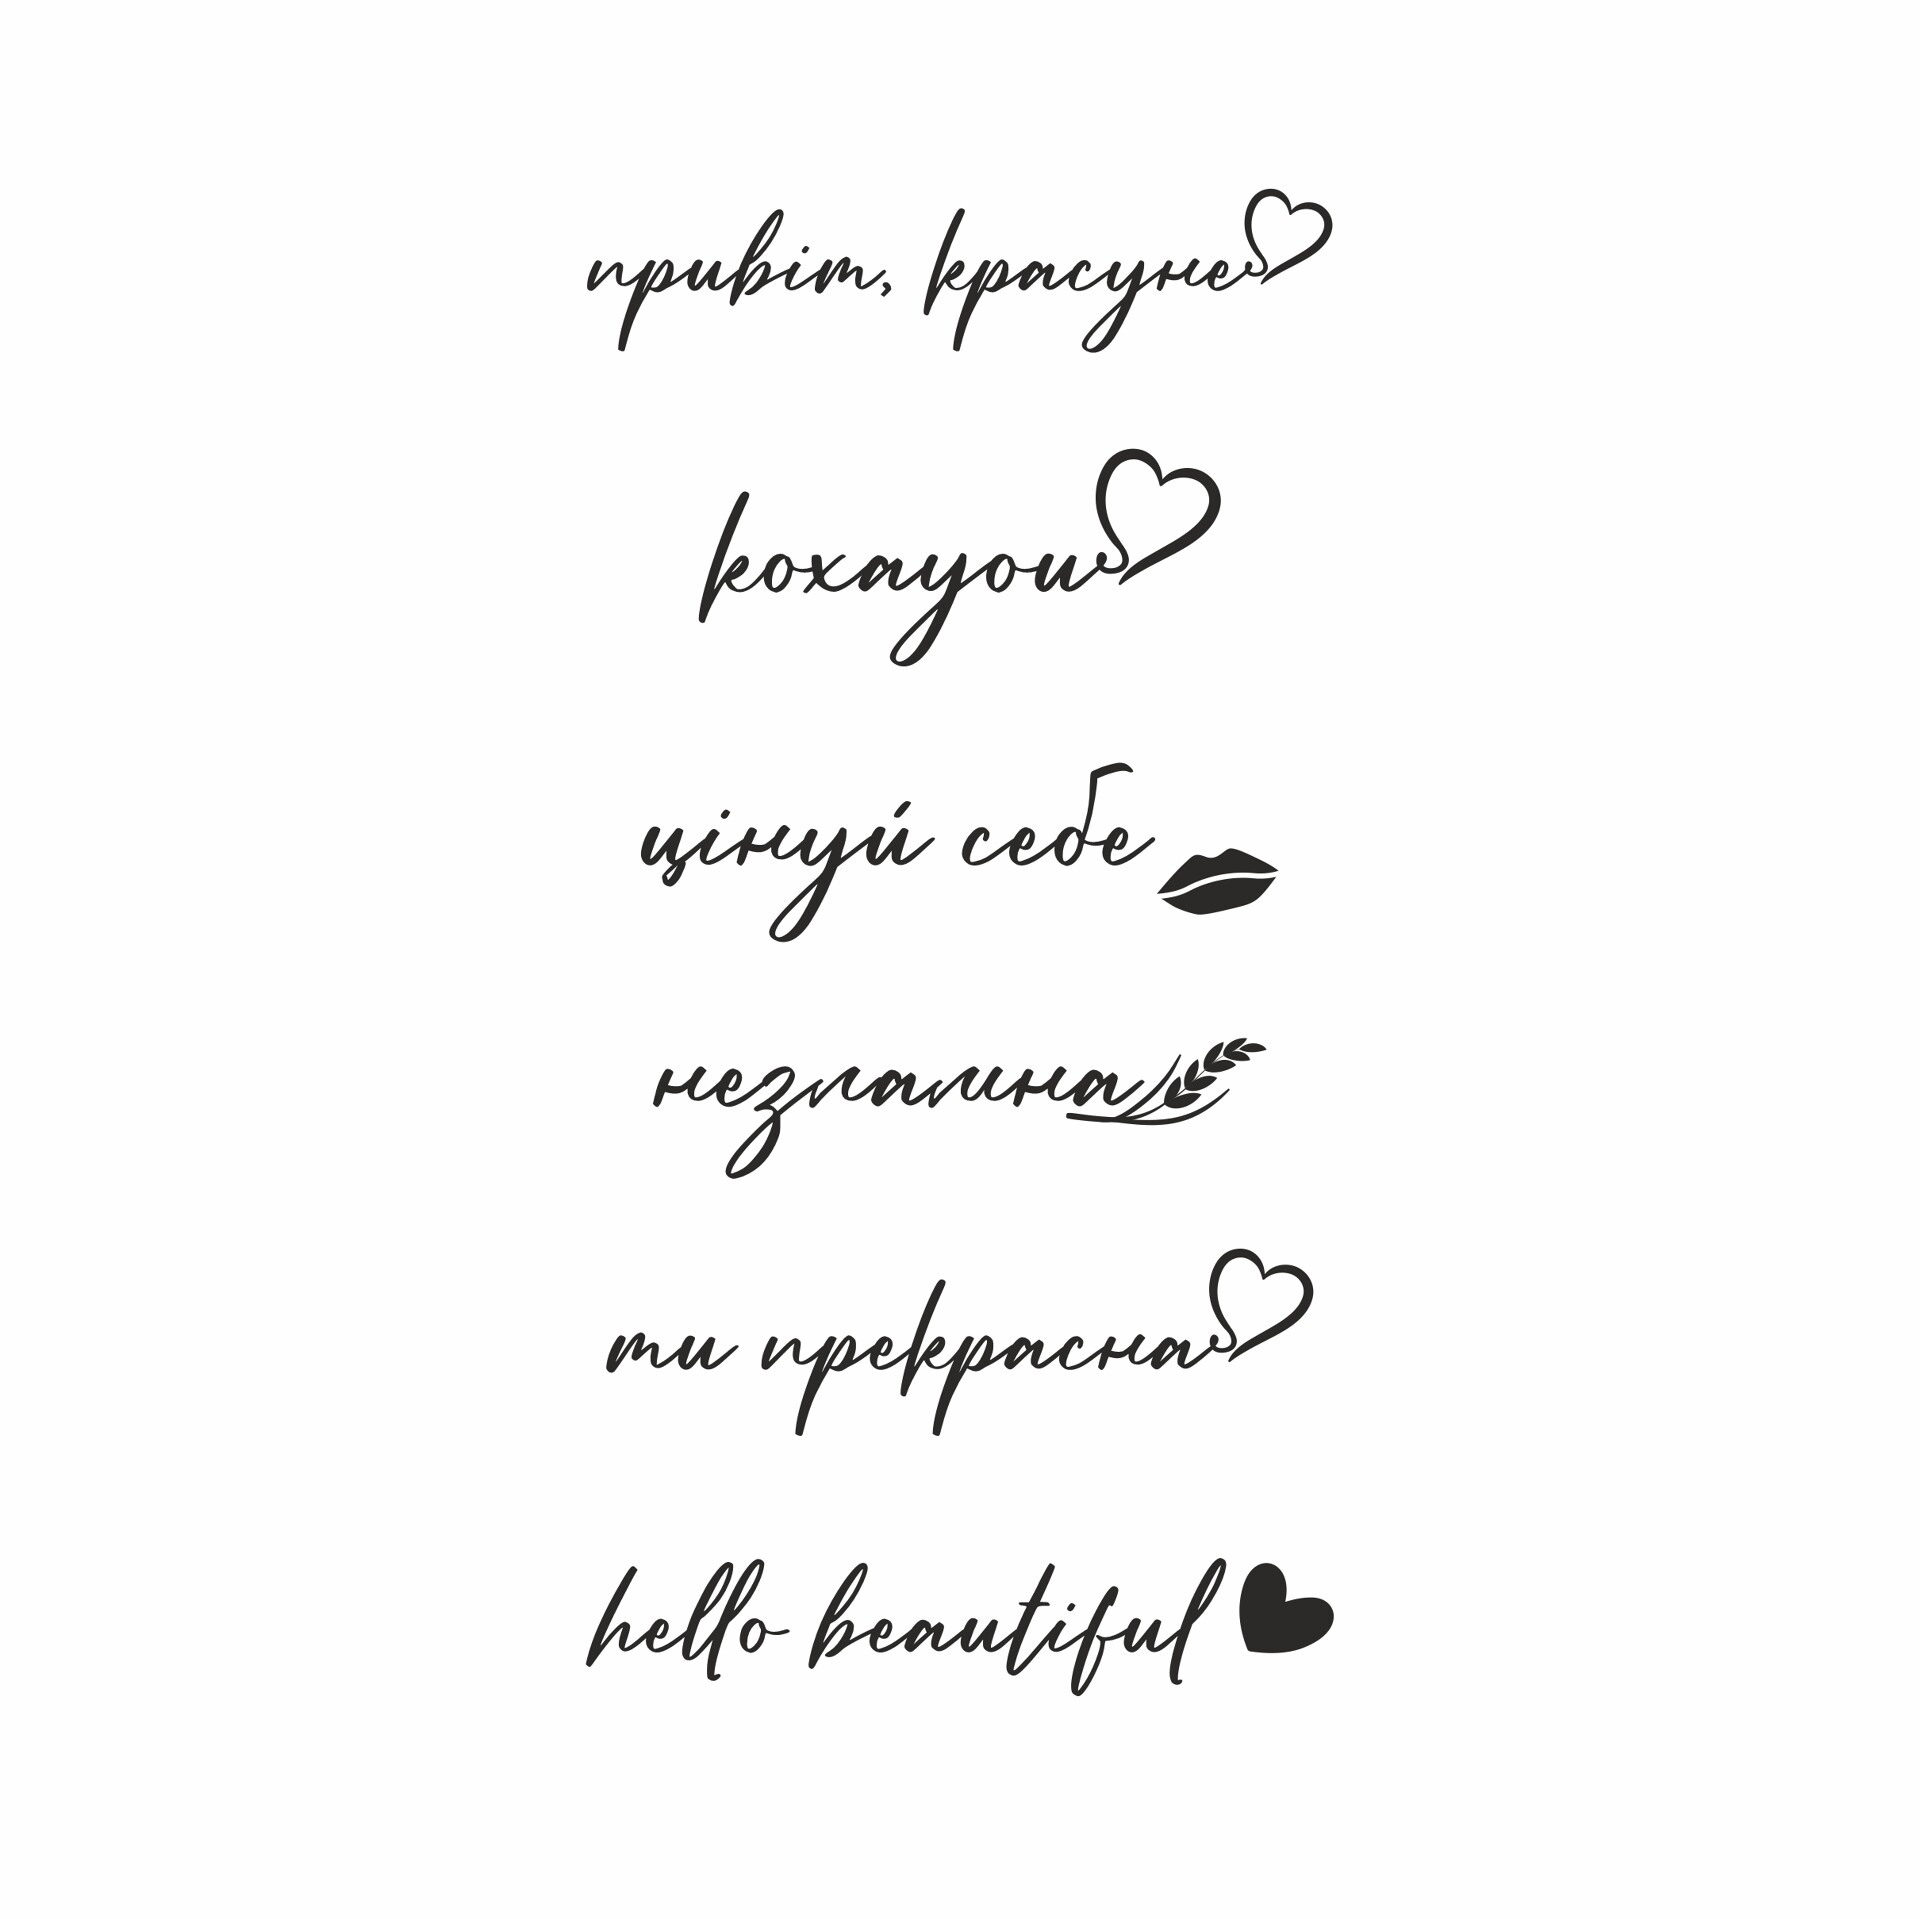 привіт, красуне
кохаyou
цінуй себе
незламна
ти прекрасна
hello beautiful